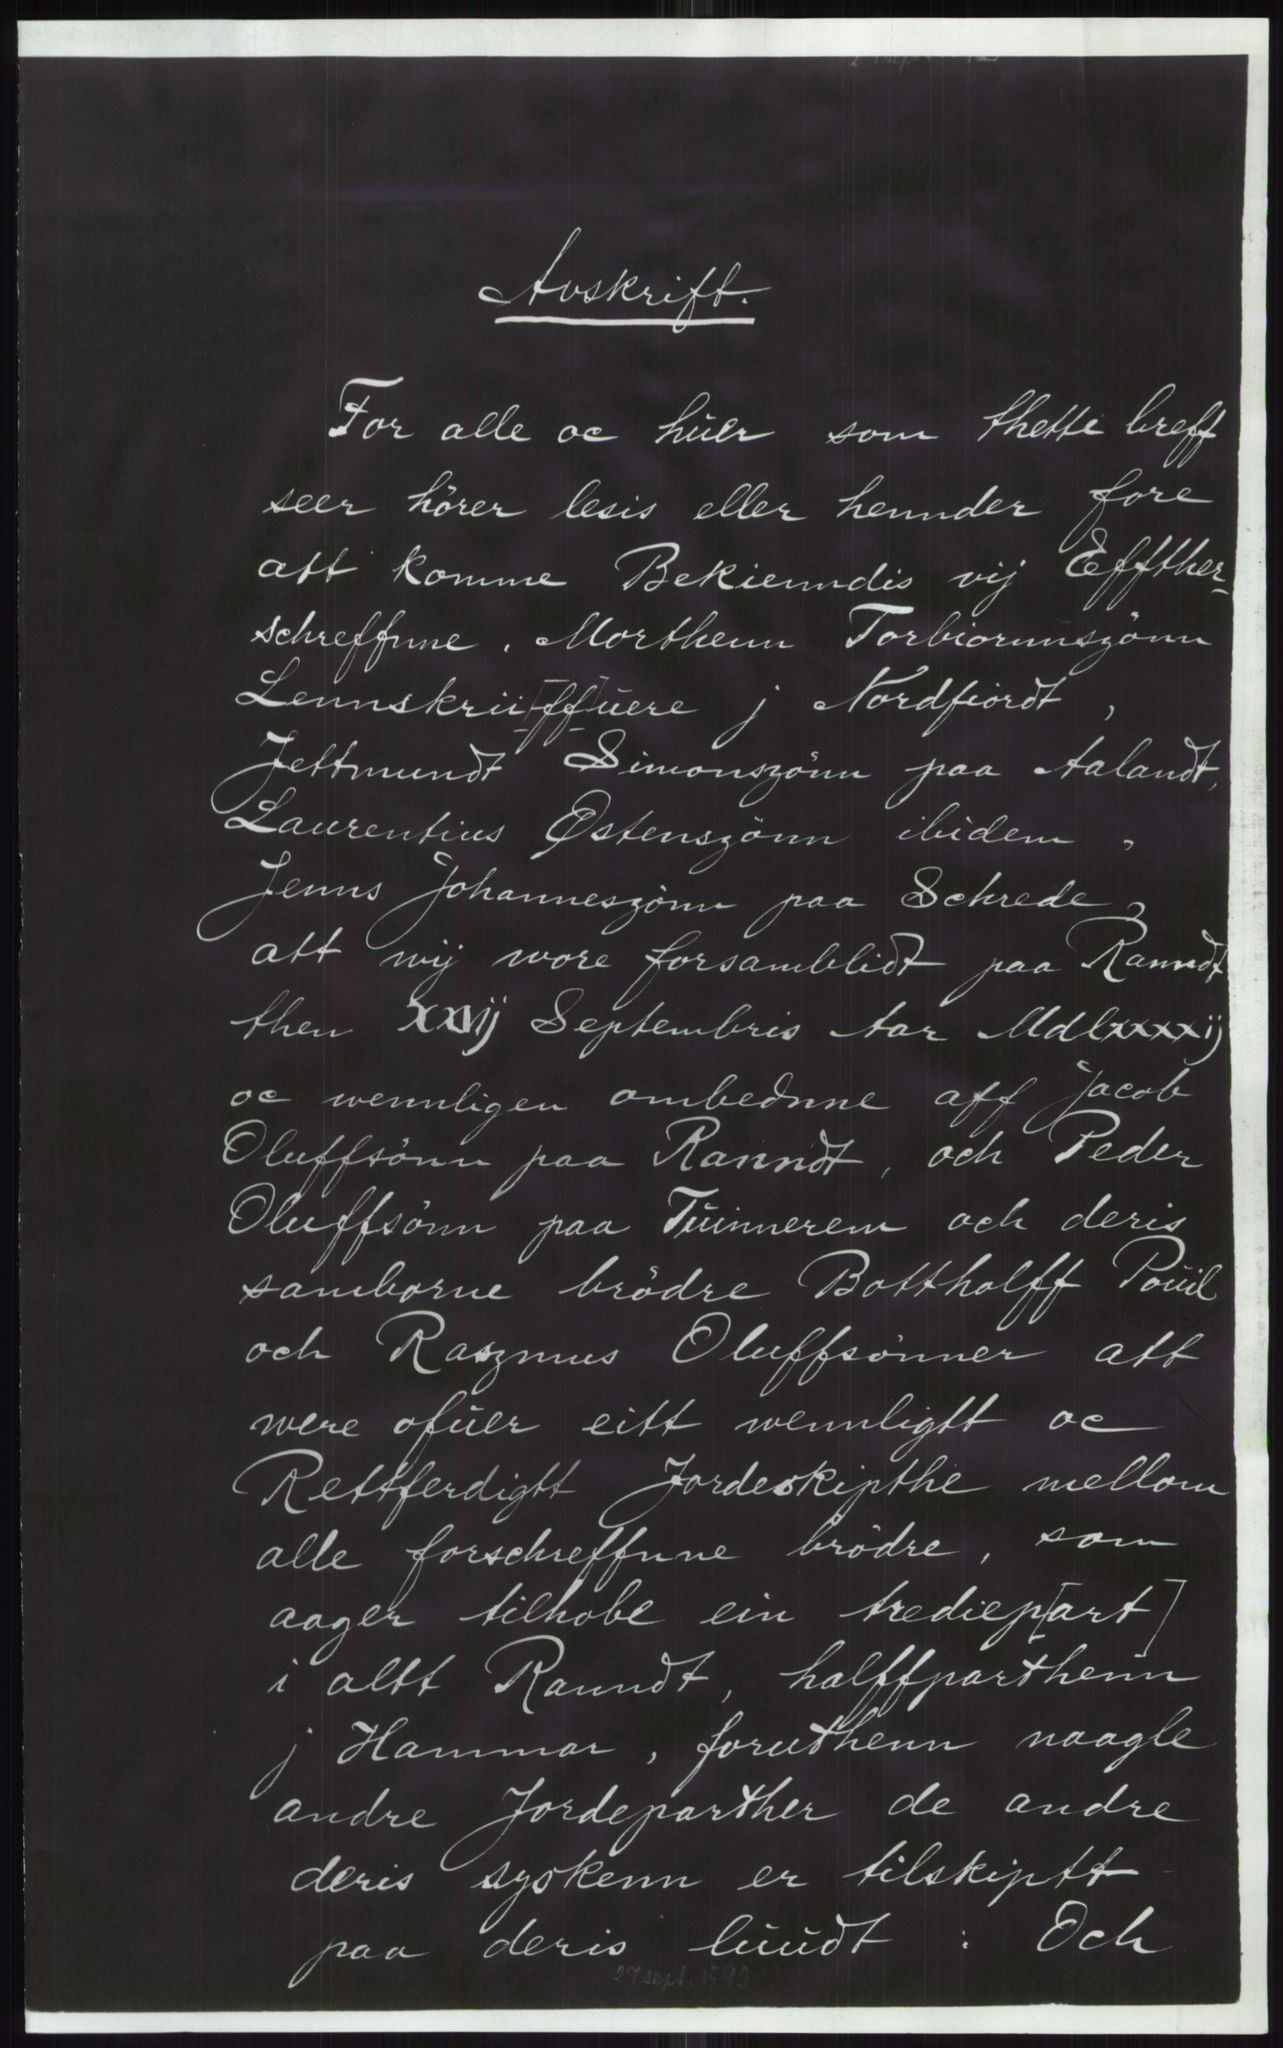 Avskrift.
For alle oc huer som thette breff
seer hörer lesis eller hennder fore
att komme Bekienndis vij Effther-
schreffnne. Morthenn Torbiornnszönn
Lennskrii[ff]uere j Nordfiordt,
Jettmundt Simonszönn paa Aalandt,
Laurentius Østenszönn ibidem,
Jenns Johanneszönn paa Schrede,
att wij wore forsamblidt paa Ranndt
then XXVij Septembris Aar Mdlxxxxij
oc wennligen ombednne aff Jacob
Oluffsönn paa Ranndt, och Peder
Oluffsönn paa Tuinnerem och deris
samborne brödre Bottholff Pouil
och Raszmus Oluffsönner att
were ofuer eitt wennligtt oc
Rettferdigtt Jordeskipthe mellom
alle forschreffnne brödre, som
aager tilhobe ein trediep[art]
i altt Ranndt, halffparthenn
j Hammar, foruthenn naagle
andre Jordeparther de andre
deris syskenn er tilskiptt
paa deris luudt: Och
27 sept. 1592